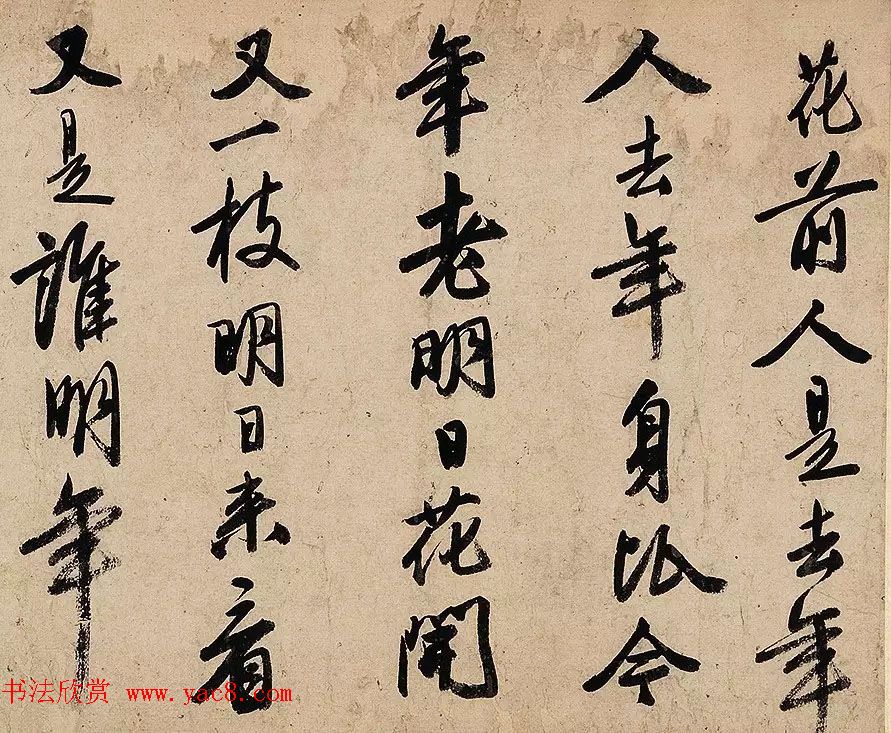 花前人是去年
人去年身比今
年老明日花開
又一枝明日来看
又是誰明年
书法欣赏 www.yac8.com